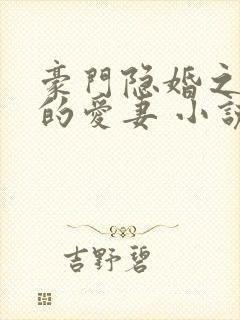 豪門隐婚之
的爱妻 小説
吉野碧